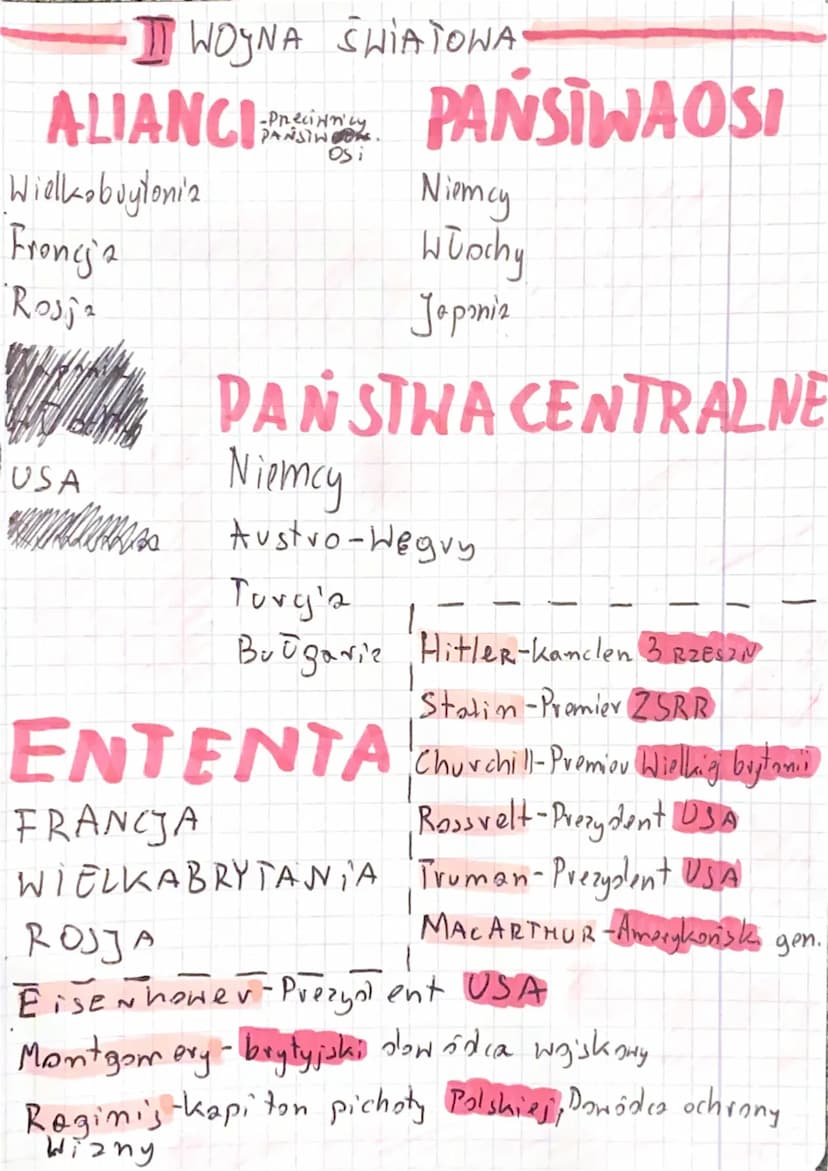 II WOJNA ŚWIATOWA
ALIANCI - Przeciwnicy
PAŃSTW
OSi
Wielkobrytania
Francja
Rosja
USA
PAŃSTWA OSI
Niemcy
Włochy
Japonia
PAŃSTWA CENTRALNE
Niemcy
Austro-Węgry
Turcja
Bułgaria
ENTENTA
FRANCJA
WIELKABRYTANiA
ROSJA
Hitler-Kanclen 3 RZESZN
Stalin-Premier ZSRR
Churchill-Premier Wielkiej brytanii
Rossvelt-Prezydent USA
Truman-Prezydent USA
MACARTHUR-Amerykański gen.
Eisenhower-Prezydent USA
Montgomery-brytyjski dowódca wojskowy
Raginis-Kapitan pichoty Polskiej, Dowódca ochrony
Wizny